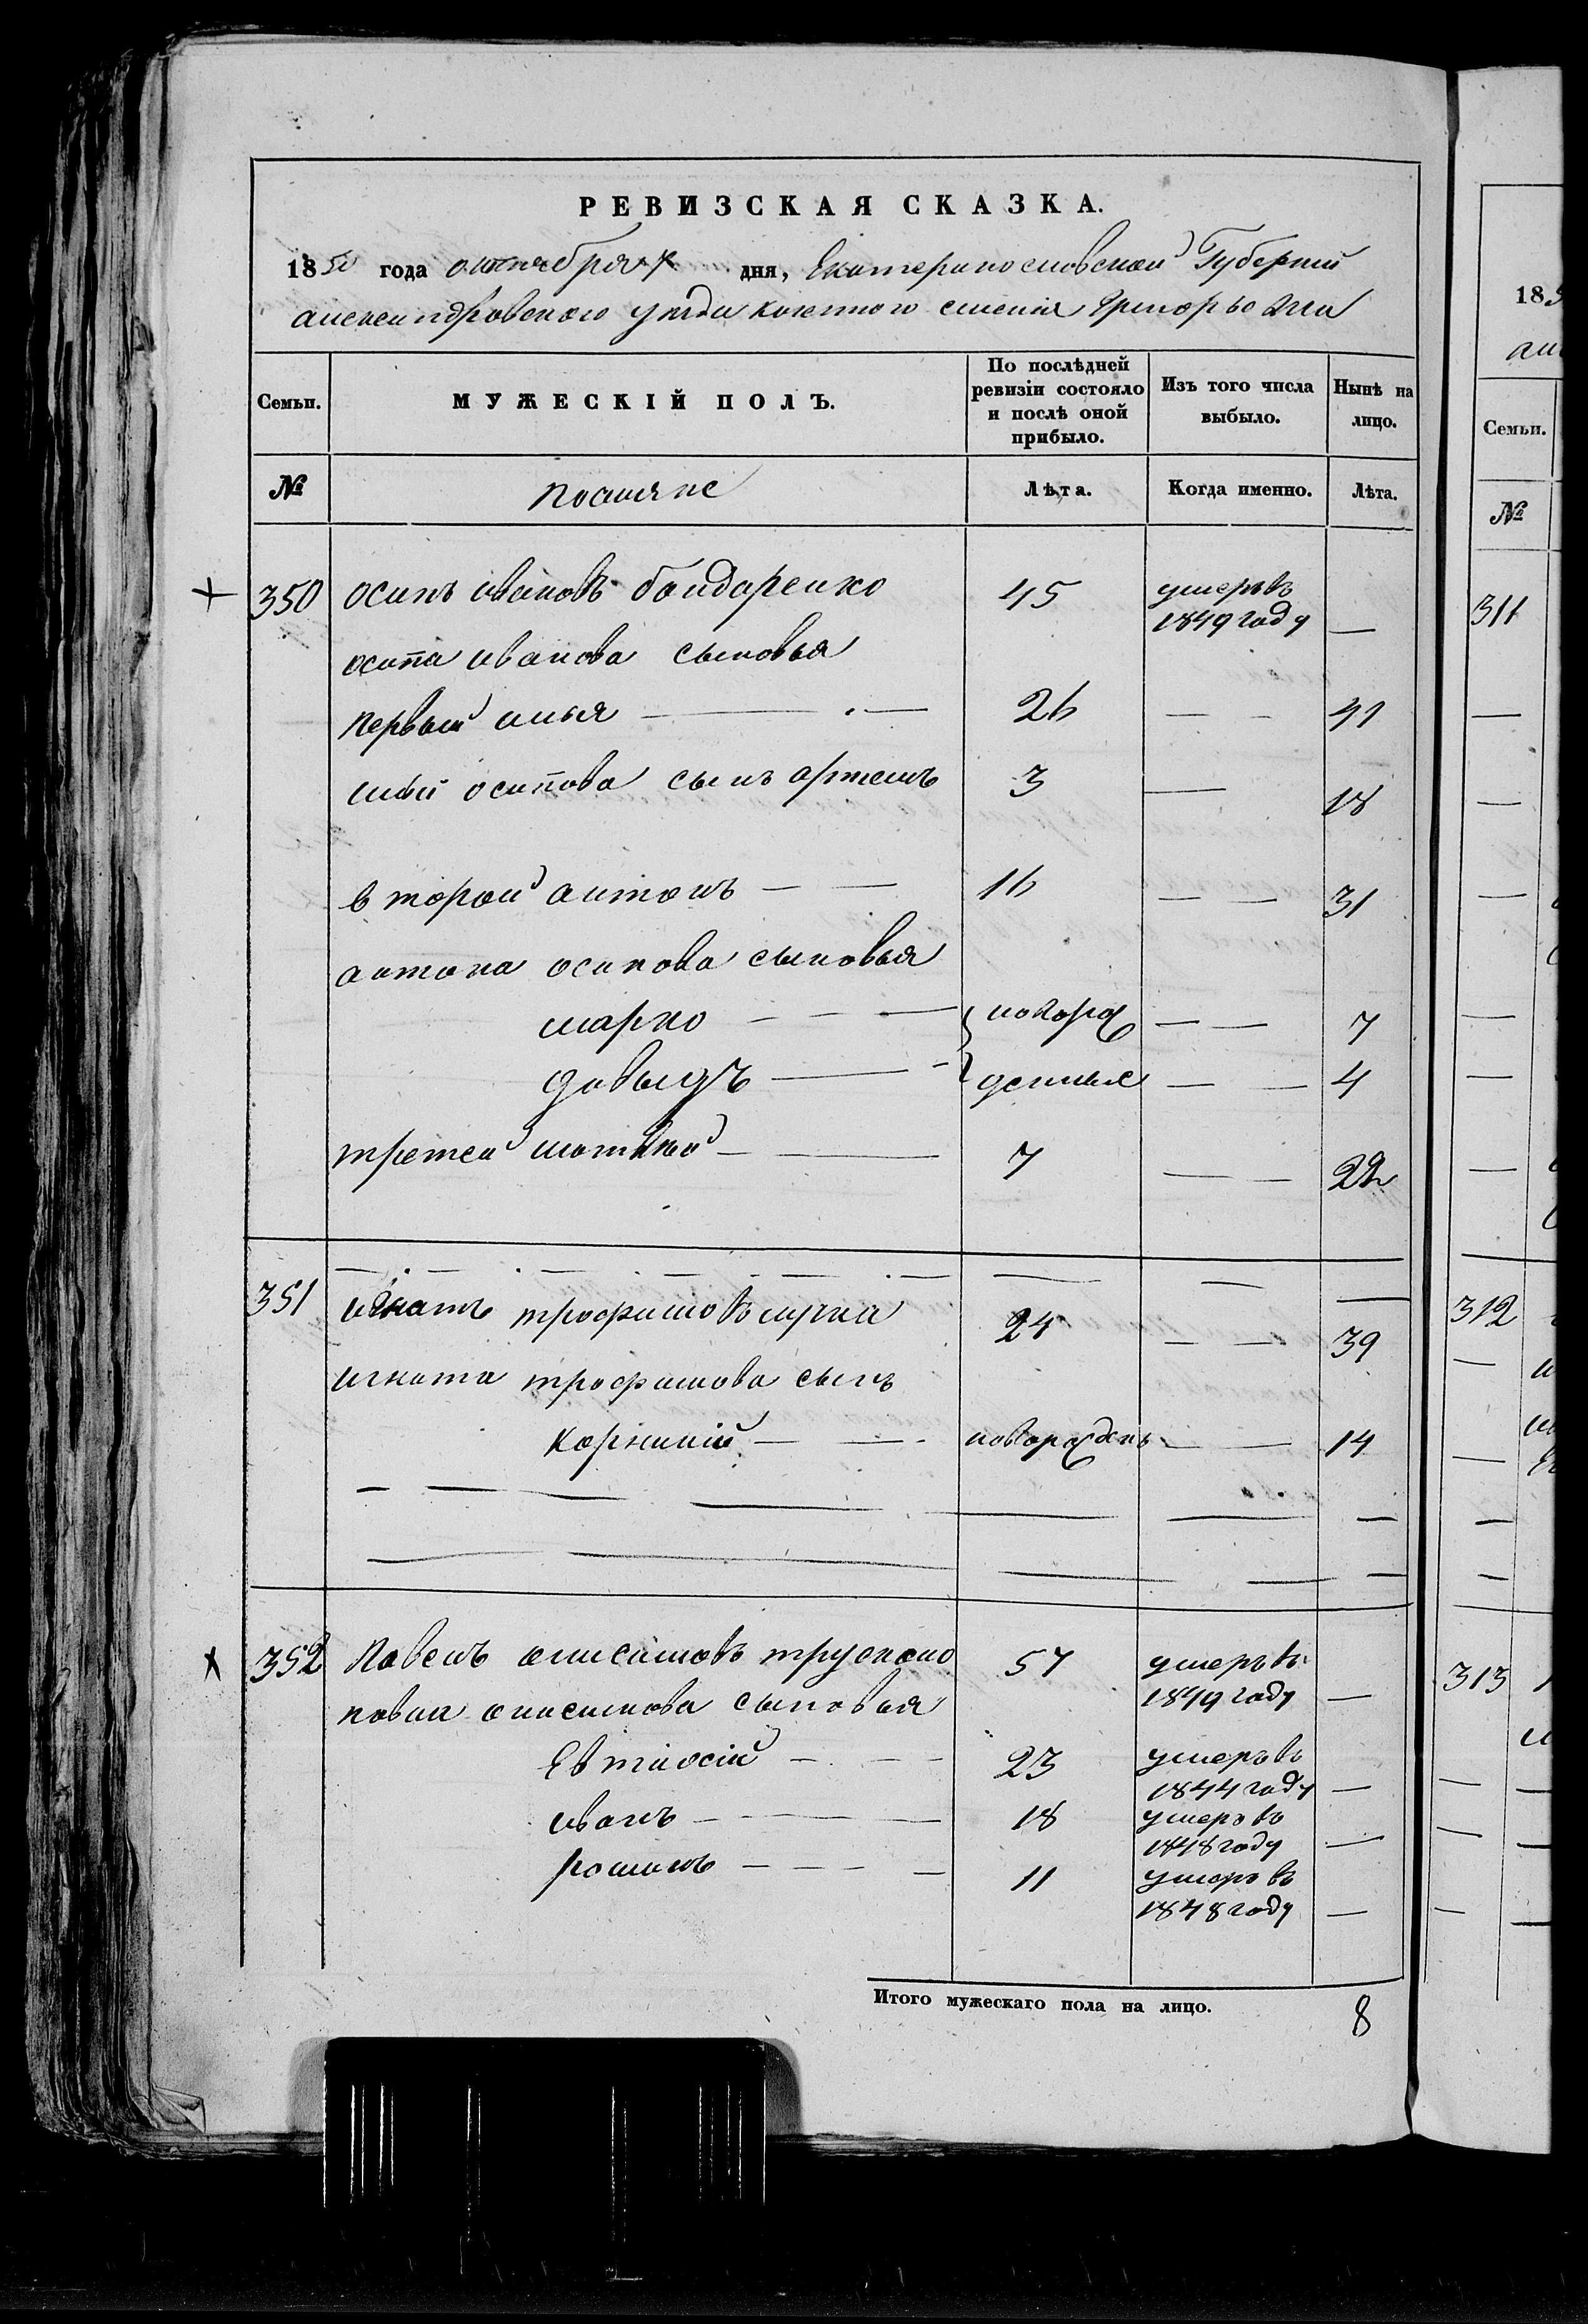 РЕВИЗСКАЯ СКАЗКА.
1850 года октября 7 дня, Екатеринославской Губернии
александровского уезда казенного селения Григорьевки
Семьи. МУЖЕСКІЙ ПОЛЪ. По послѣдней ревизіи состояло и послѣ оной прибыло. Изъ того числа выбыло. Нынѣ на лицо.
№ поселяне Лѣта. Когда именно. Лѣта.
+ 350 осипъ ивановъ бондаренко 45 умеръ въ 1849 году —
осипа иванова сыновья
первый илья — 26 — — 41
ильи осипова сынъ артемъ 3 — 18
второй антонъ — — 16 — — 31
антона осипова сыновья
марко — — — новорож — — 7
давыдъ — — денные — — 4
третей матвѣй — — 7 — — 22
351 игнатъ трофимовъ 24 — — 39
игната трофимова сынъ
корнилій — — новорожденъ — — 14
х 352 павелъ онисимовъ 57 умеръ въ 1849 году —
павла онисимова сыновья
Евтиосій — — 23 умеръ въ 1844 году —
иванъ — — — 18 умеръ въ 1848 году —
романъ — — — — 11 умеръ въ 1848 году —
Итого мужескаго пола на лицо. 8
185
Семьи.
№
311
312
313